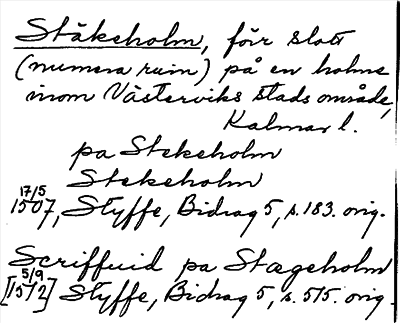 Ståkeholm, förr slott
(numera ruin) på en holme
inom Västerviks stads område,
Kalmar l.
pa Stekeholm
Stekeholm
17/5
1507, Styffe, Bidrag 5, s. 183. orig.
Scriffuid pa Stægeholm
5/9
[1512] Styffe, Bidrag 5, s. 515. orig.